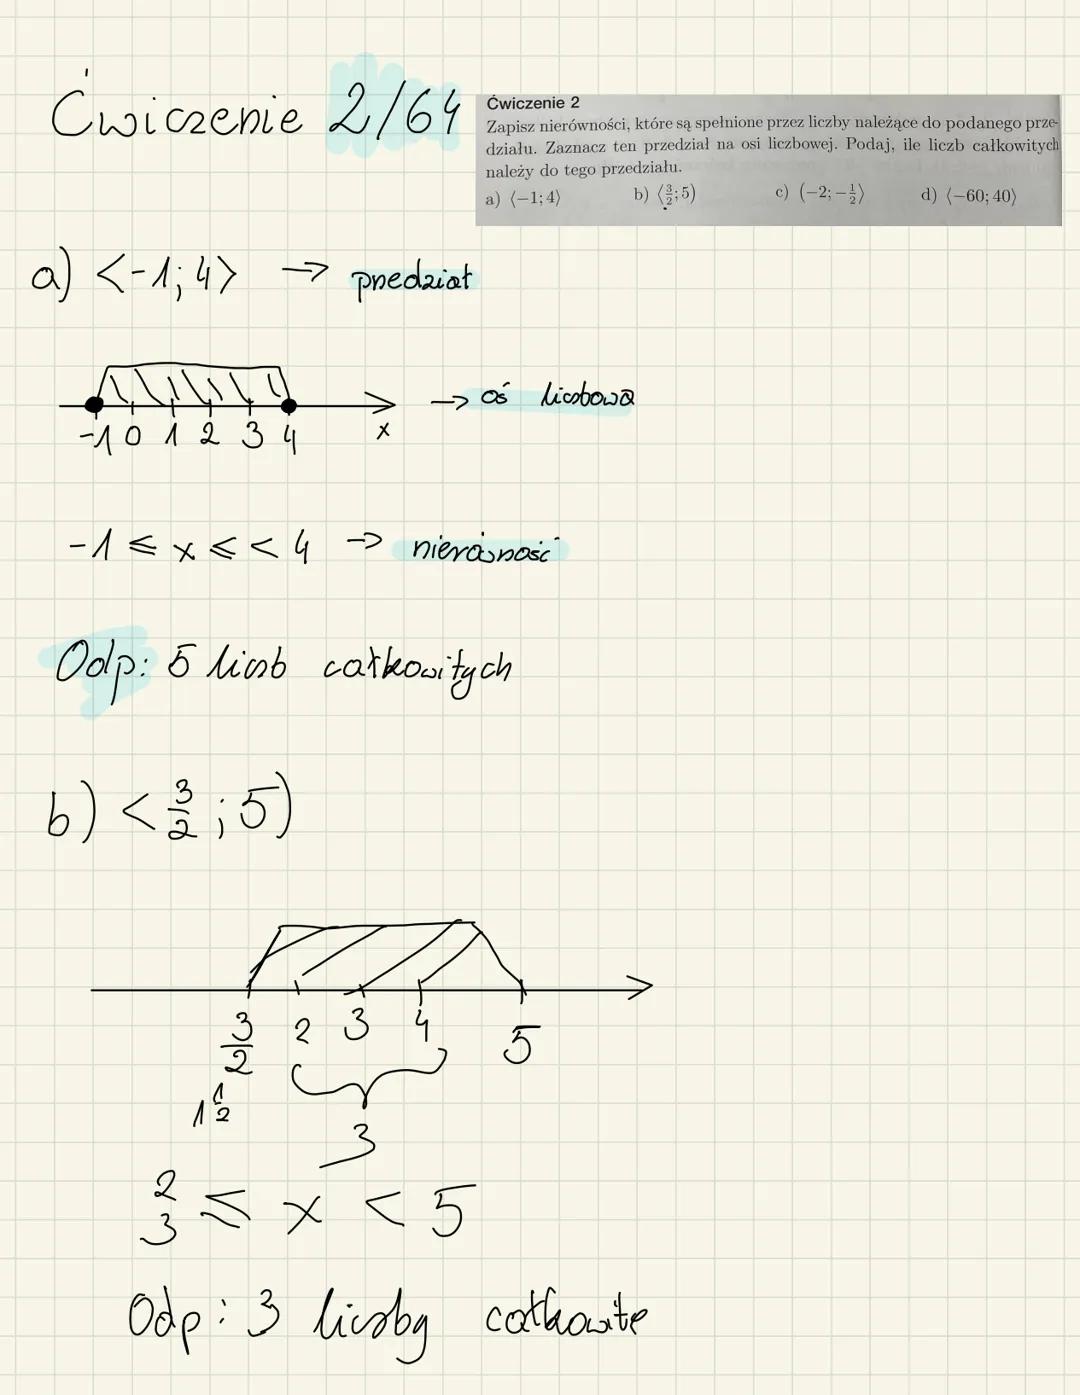 Ćwiczenie 2/64
Ćwiczenie 2
Zapisz nierówności, które są spełnione przez liczby należące do podanego prze-
działu. Zaznacz ten przedział na osi liczbowej. Podaj, ile liczb całkowitych
należy do tego przedziału.
a) ⟨−1; 4⟩ b) ⟨3/2; 5) c) (−2; −1/2⟩ d) ⟨−60; 40⟩
a) <-1; 4> → przedział
-1 0 1 2 3 4 x → oś liczbowa
-1 ⩽ x ⩽ < 4 → nierówność
Odp: 5 liczb całkowitych
b) < 3/2 ; 5)
3/2 2 3 4 5
1 1/2
3
2/3 ⩽ x < 5
Odp: 3 liczby całkowite